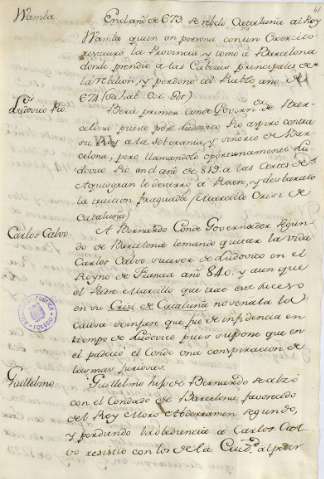 Wamba
En el año de 673 se rebeló Cataluña al Rey
Wamba quien en persona con un Exercito
restauró la Provincia y tomó a Barcelona
donde prendió a las Cabezas principales de
la rebelion, y perdonó al Pueblo año de
674
Ludovico Pio
Bera primer Conde Govern.or de Bar-
celona puesto por Ludovico Pio aspiró contra
su Rey a la soberania, y señorio de Bar-
celona, pero llamandole oportunamente Lu-
dovico Pio en el año de 819 a las Cortes de
Aquisgran le desterró a Roven, y desbarató
la quicion fraguada (Marcillo Crisi de
Cataluña)
Carlos Calvo
A Bernardo Conde Governador segun-
do de Barcelona mandó quitar la vida
Carlos Calvo sucesor de Ludovico en el
Reyno de Francia año 840. y aun que
el Padre Marcillo que trae este suceso
en su Crisi de Cataluña no señala la
causa se infiere que fue de infidencia en
tiempo de Ludovico pues supone que en
el padeció el Conde una conspiracion de
Guillelmo
Guillelmo hijo de Bernardo se alzó
con el Condado de Barcelona favorecido
del Rey Moro Abderramen segundo,
y perdiendo la obediencia a Carlos Cal-
vo resistio con los de la Ciud.d al poder